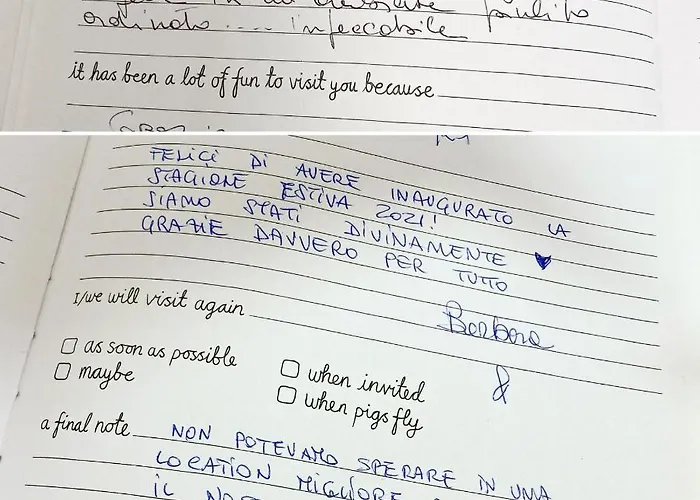 pulito
ordinato .... infeccabile
it has been a lot of fun to visit you because
FELICI DI AVERE INAUGURATO LA
STAGIONE ESTIVA 2021!
SIAMO STATI DIVINAMENTE ♥
GRAZIE DAVVERO PER TUTTO
I/we will visit again
Barbara
&
as soon as possible
maybe
when invited
when pigs fly
a final note NON POTEVAMO SPERARE IN UNA
LOCATION MIGLIORE
IL